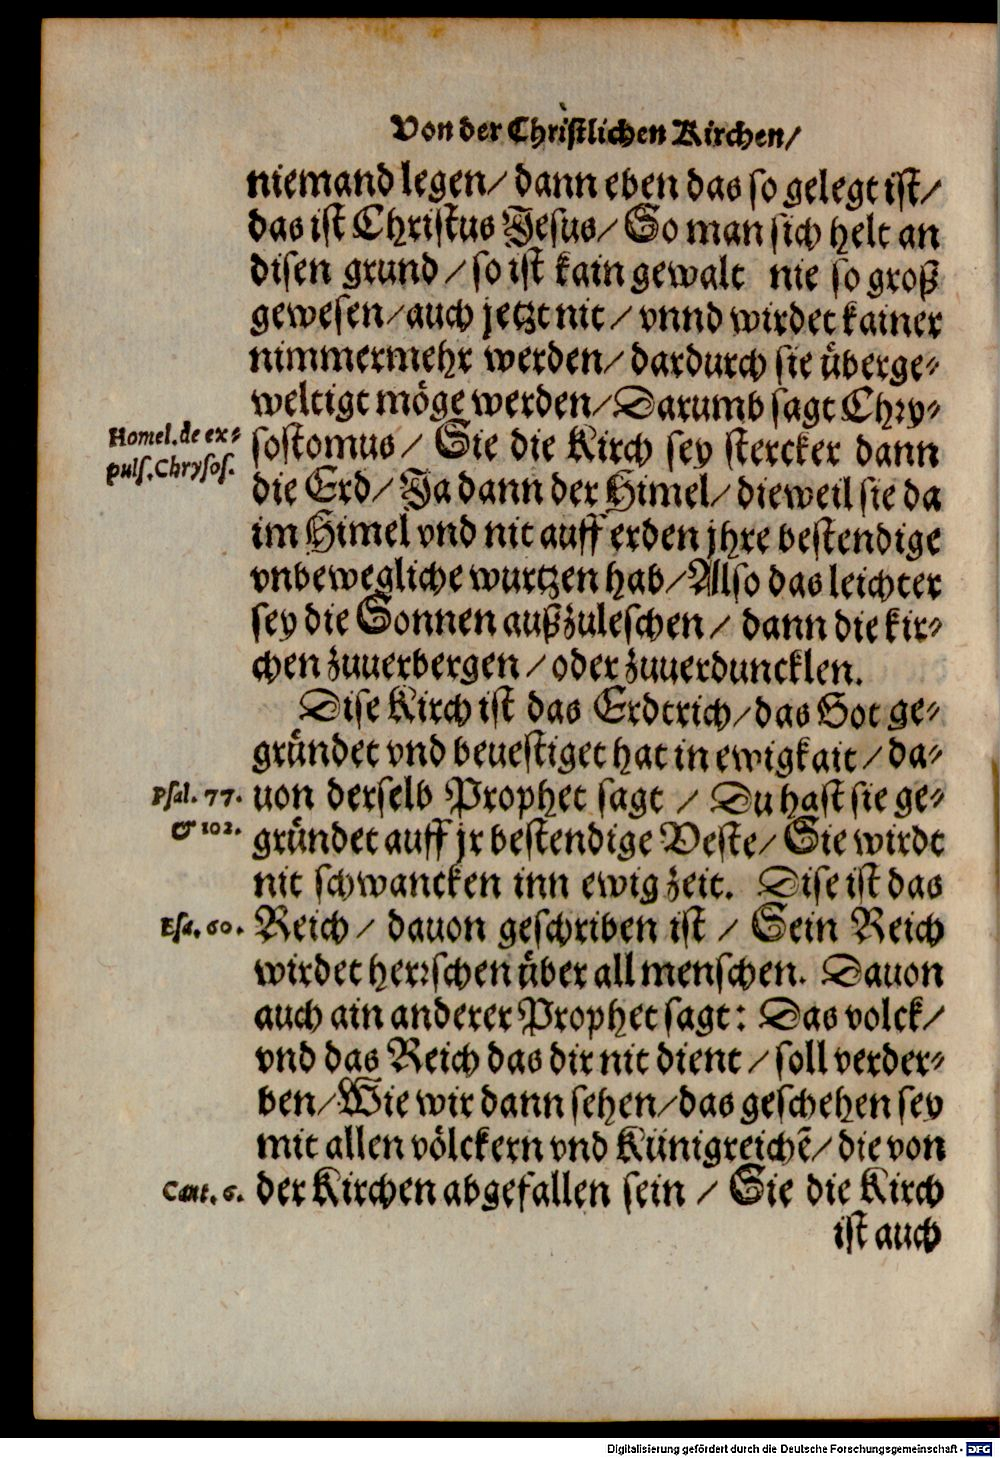 Von der Christlichen Kirchen/
niemand legen/ dann eben das so gelegt ist/
das ist Christus Jesus/ So man sich helt an
disen grund/ so ist kain gewalt nie so groß
gewesen/ auch jetzt nit/ vnnd wirdet kainer
nimmermehr werden/ dardurch sie überge⸗
weltigt möge werden/ Darumb sagt Chry⸗
Homel. de ex⸗
puls. Chrysos.
sostomus/ Sie die Kirch sey stercker dann
die Erd/ Ja dann der Himel/ dieweil sie da
im Himel vnd nit auff erden jhre bestendige
vnbewegliche wurtzen hab/ Also das leichter
sey die Sonnen außzuleschen/ dann die kir⸗
chen zuuerbergen/ oder zuuerduncklen.
Dise Kirch ist das Erdtrich/ das Got ge⸗
gründet vnd beuestiget hat in ewigkait/ da⸗
Psal. 77.
& 102.
uon derselb Prophet sagt / Du hast sie ge⸗
gründet auff jr bestendige Veste/ Sie wirdt
nit schwancken inn ewig zeit. Dise ist das
Esa. 60.
Reich/ dauon geschriben ist / Sein Reich
wirdet herrschen über all menschen. Dauon
auch ain anderer Prophet sagt: Das volck/
vnd das Reich das dir nit dient/ soll verder⸗
ben/ Wie wir dann sehen/ das geschehen sey
mit allen völckern vnd Künigreichē/ die von
Cant. 6.
der Kirchen abgefallen sein / Sie die Kirch
ist auch
Digitalisierung gefördert durch die Deutsche Forschungsgemeinschaft - DFG